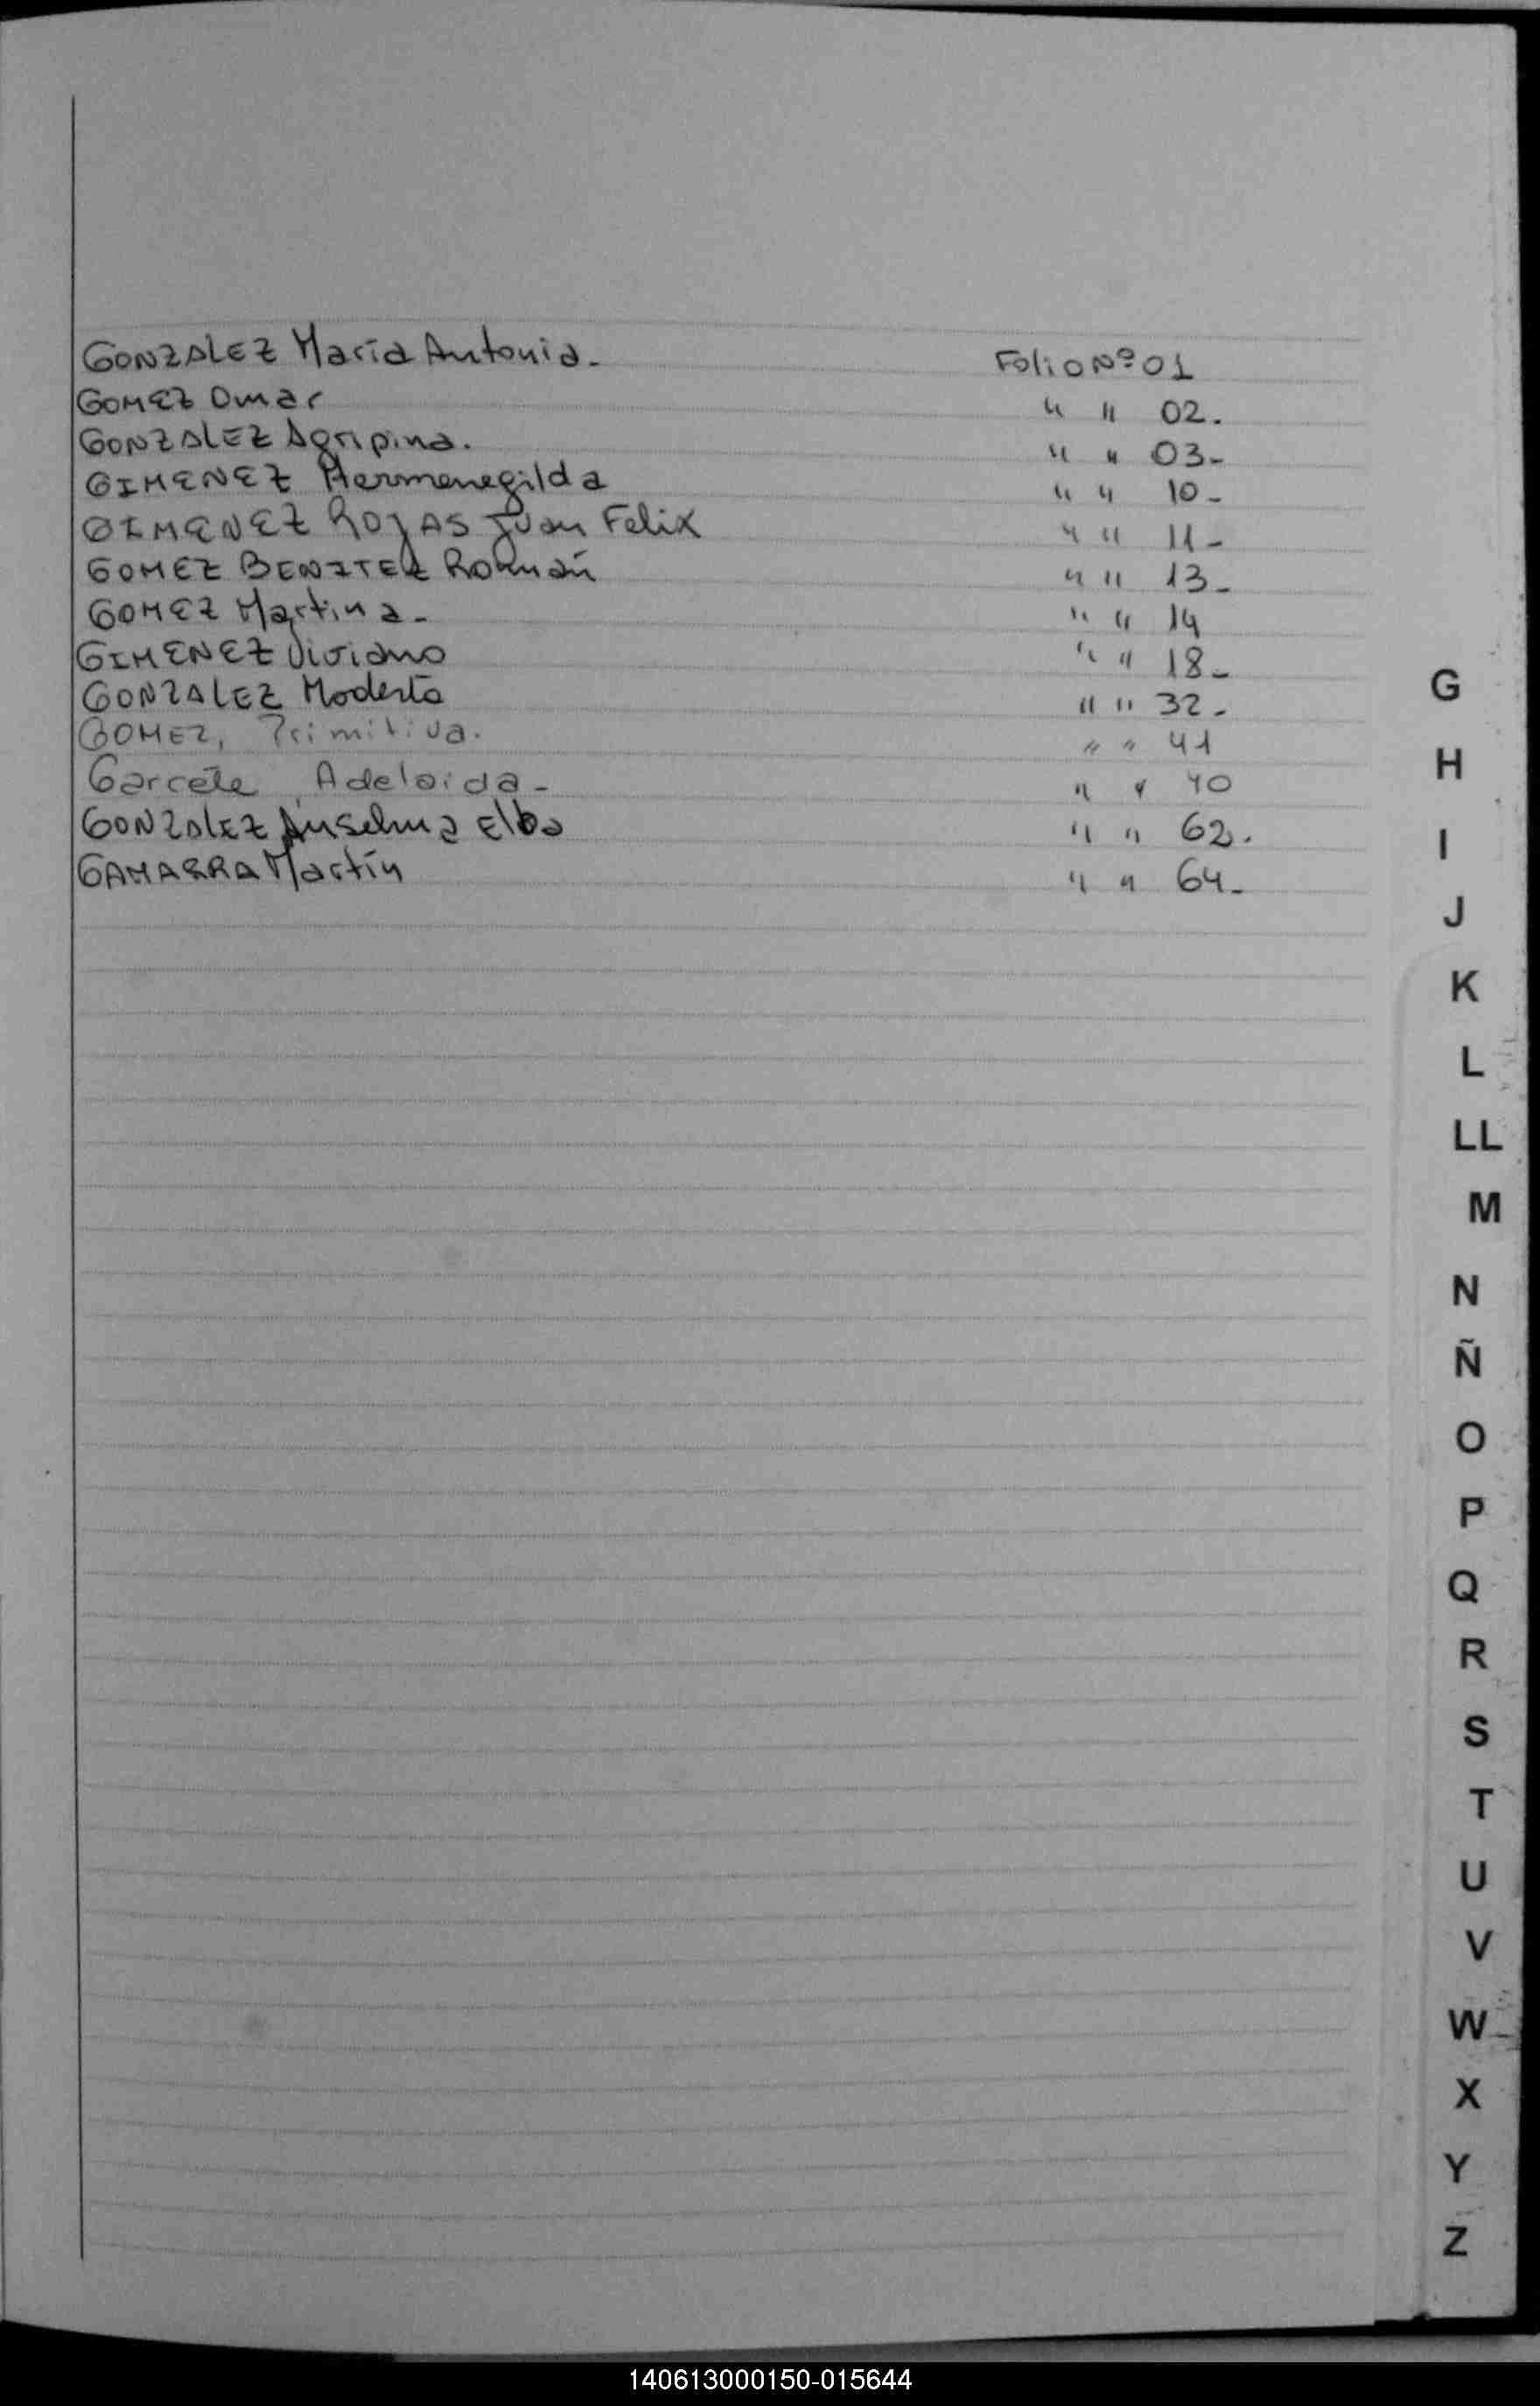 GONZALEZ María Antonia- Folio Nº 01
GOMEZ Omar " " 02.
GONZALEZ Agripina. " " 03-
GIMENEZ Hermenegilda " " 10-
GIMENEZ ROJAS Juan Felix " " 11-
GOMEZ BENITEZ Román " " 13-
GOMEZ Martina- " " 14
GIMENEZ Viviano " " 18-
GONZALEZ Modesta " " 32-
GOMEZ, Primitiva. " " 41
Garcete, Adelaida- " " 40
GONZALEZ Anselma Elba " " 62.
GAMARRA Martín " " 64-
G
H
I
J
K
L
LL
M
N
Ñ
O
P
Q
R
S
T
U
V
W
X
Y
Z
140613000150-015644